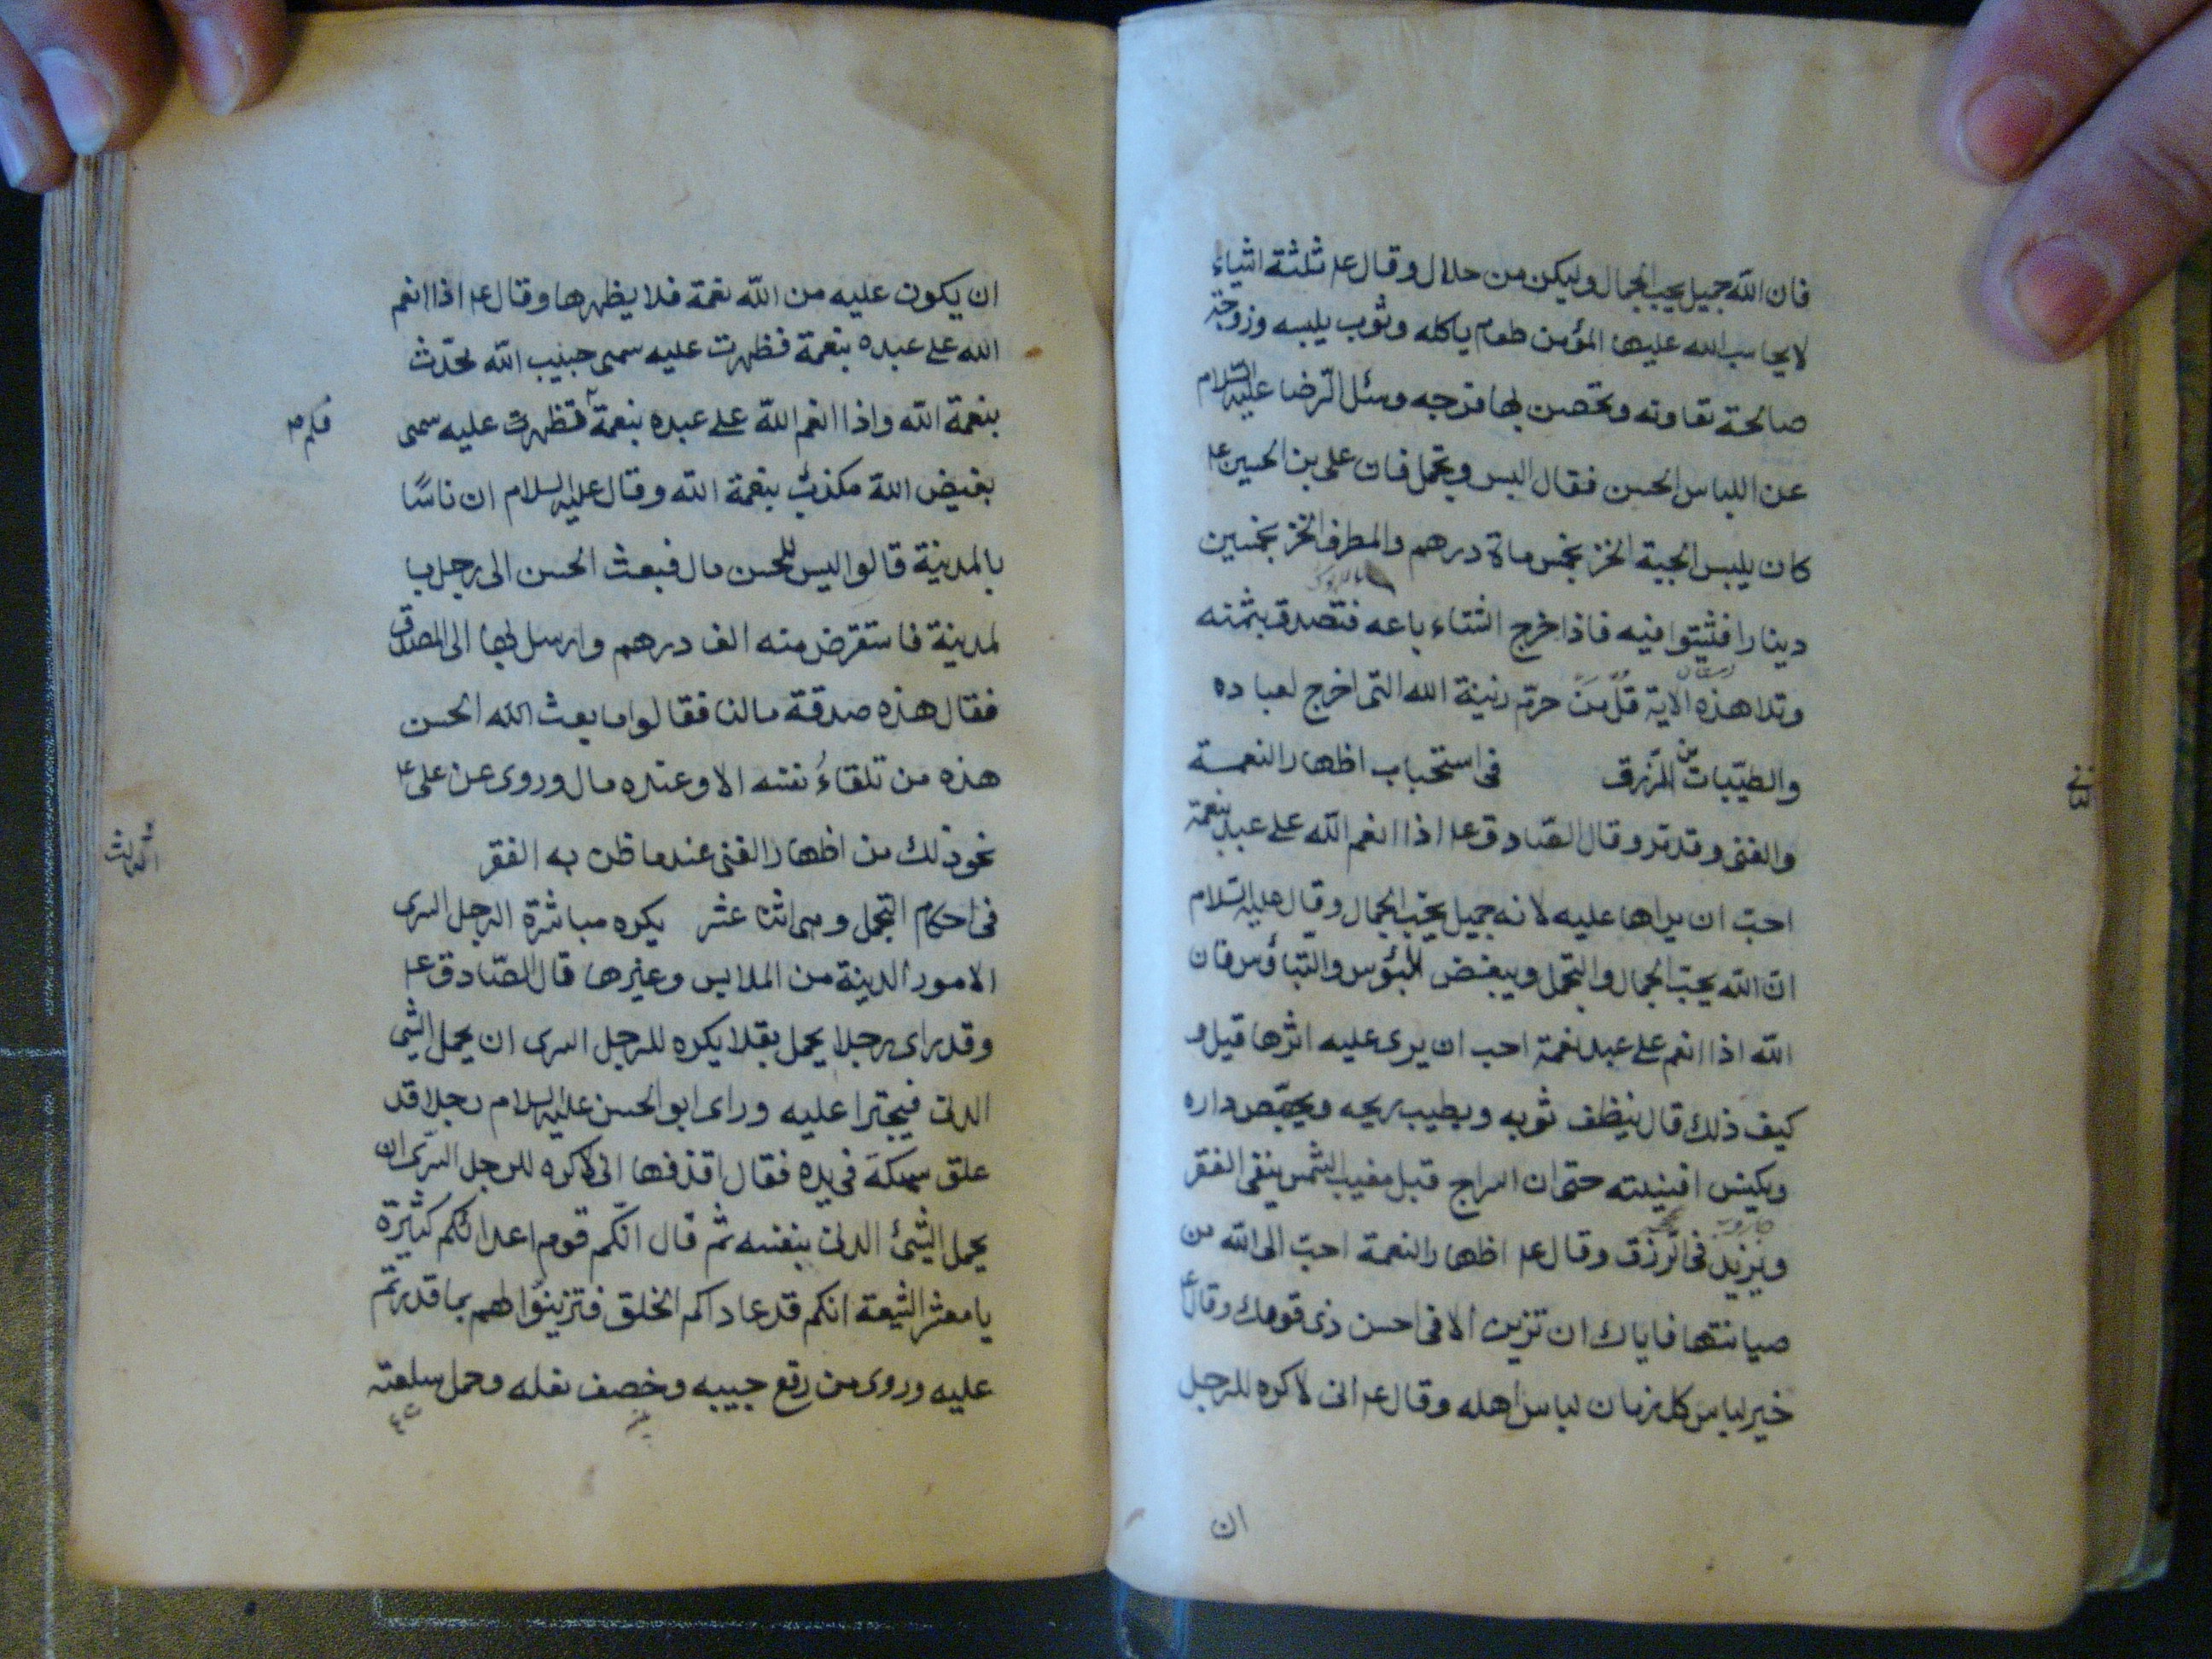 فان الله جميل يحب الجمال وليكن من حلال وقال ع ثلثة اشياء
لا يحاسب الله عليها المؤمن طعام ياكله وثوب يلبسه وزوجة
صالحة تعاونه وتحصن بها فرجه وسئل الرضا عليه السلام
عن اللباس الحسن فقال البس وتجمل فان على بن الحسين ع
كان يلبس الجبة الخز بخمس ماة درهم والمطرف الخز بخمسين
دينارا فيشتوا فيه فاذا خرج الشتاء باعه فتصدق بثمنه
زمستان
وتلا هذه الاية قل من حرم زينة الله التى اخرج لعباده
والطيبات من الرزق فى استحباب اظهار النعمة
والغنى وقد مر وقال الصادق ع اذا انعم الله على عبد بنعمة
احب ان يراها عليه لانه جميل يحب الجمال وقال عليه السلام
ان الله يحب الجمال والتجمل ويبغض البؤس والتباؤس فان
الله اذا انعم على عبد نعمة احب ان يرى عليه اثرها قيل و
كيف ذلك قال ينظف ثوبه ويطيب ريحه ويجصص داره
ويكنس افنيته حتى ان السراج قبل مغيب الشمس ينفى الفقر
جاروب
ويزيد فى الرزق وقال ع اظهار النعمة احب الى الله من
صيانتها فاياك ان تزين الا فى احسن ذى قومك وقال ع
خير لباس كل زمان لباس اهله وقال ع انى لاكره للرجل
ان
ان يكون عليه من الله نعمة فلا يظهرها وقال ع اذا انعم
الله على عبده بنعمة فظهرت عليه سمى حبيب الله محدث
بنعمة الله واذا انعم الله على عبده بنعمة فتظهرت عليه سمى
فلم
بغيض الله مكذب بنعمة الله وقال عليه السلام ان ناسًا
بالمدينة قالوا ليس للحسن مال فبعث الحسن الى رجل با
لمدينة فاستقرض منه الف درهم وارسل بها الى المصدق
فقال هذه صدقة مالنا فقالوا ما بعث الله الحسن
هذه من تلقاء نفسه الا وعنده مال وروى عن على ع
نحو ذلك من اظهار الغنى عندما ظن به الفقر
الثالث
فى احكام التجمل وهى اثنا عشر يكره مباشرة الرجل السرى
الامور الدينة من الملابس وغيرها قال الصادق ع
وقد راى رجلا يحمل بقلا يكره للرجل السرى ان يحمل الشى
الدنى فيجترا عليه وراى ابو الحسن عليه السلام رجلا قد
علق سمكة فى يده فقال اقذفها انى لاكره للرجل السرى ان
يحمل الشئ الدنى بنفسه ثم قال انكم قوم اعدائكم كثيرة
يا معشر الشيعة انكم قد عاداكم الخلق فتزينوا لهم بما قدرتم
عليه وروى من رقع جيبه وخصف نعله وحمل سلعته